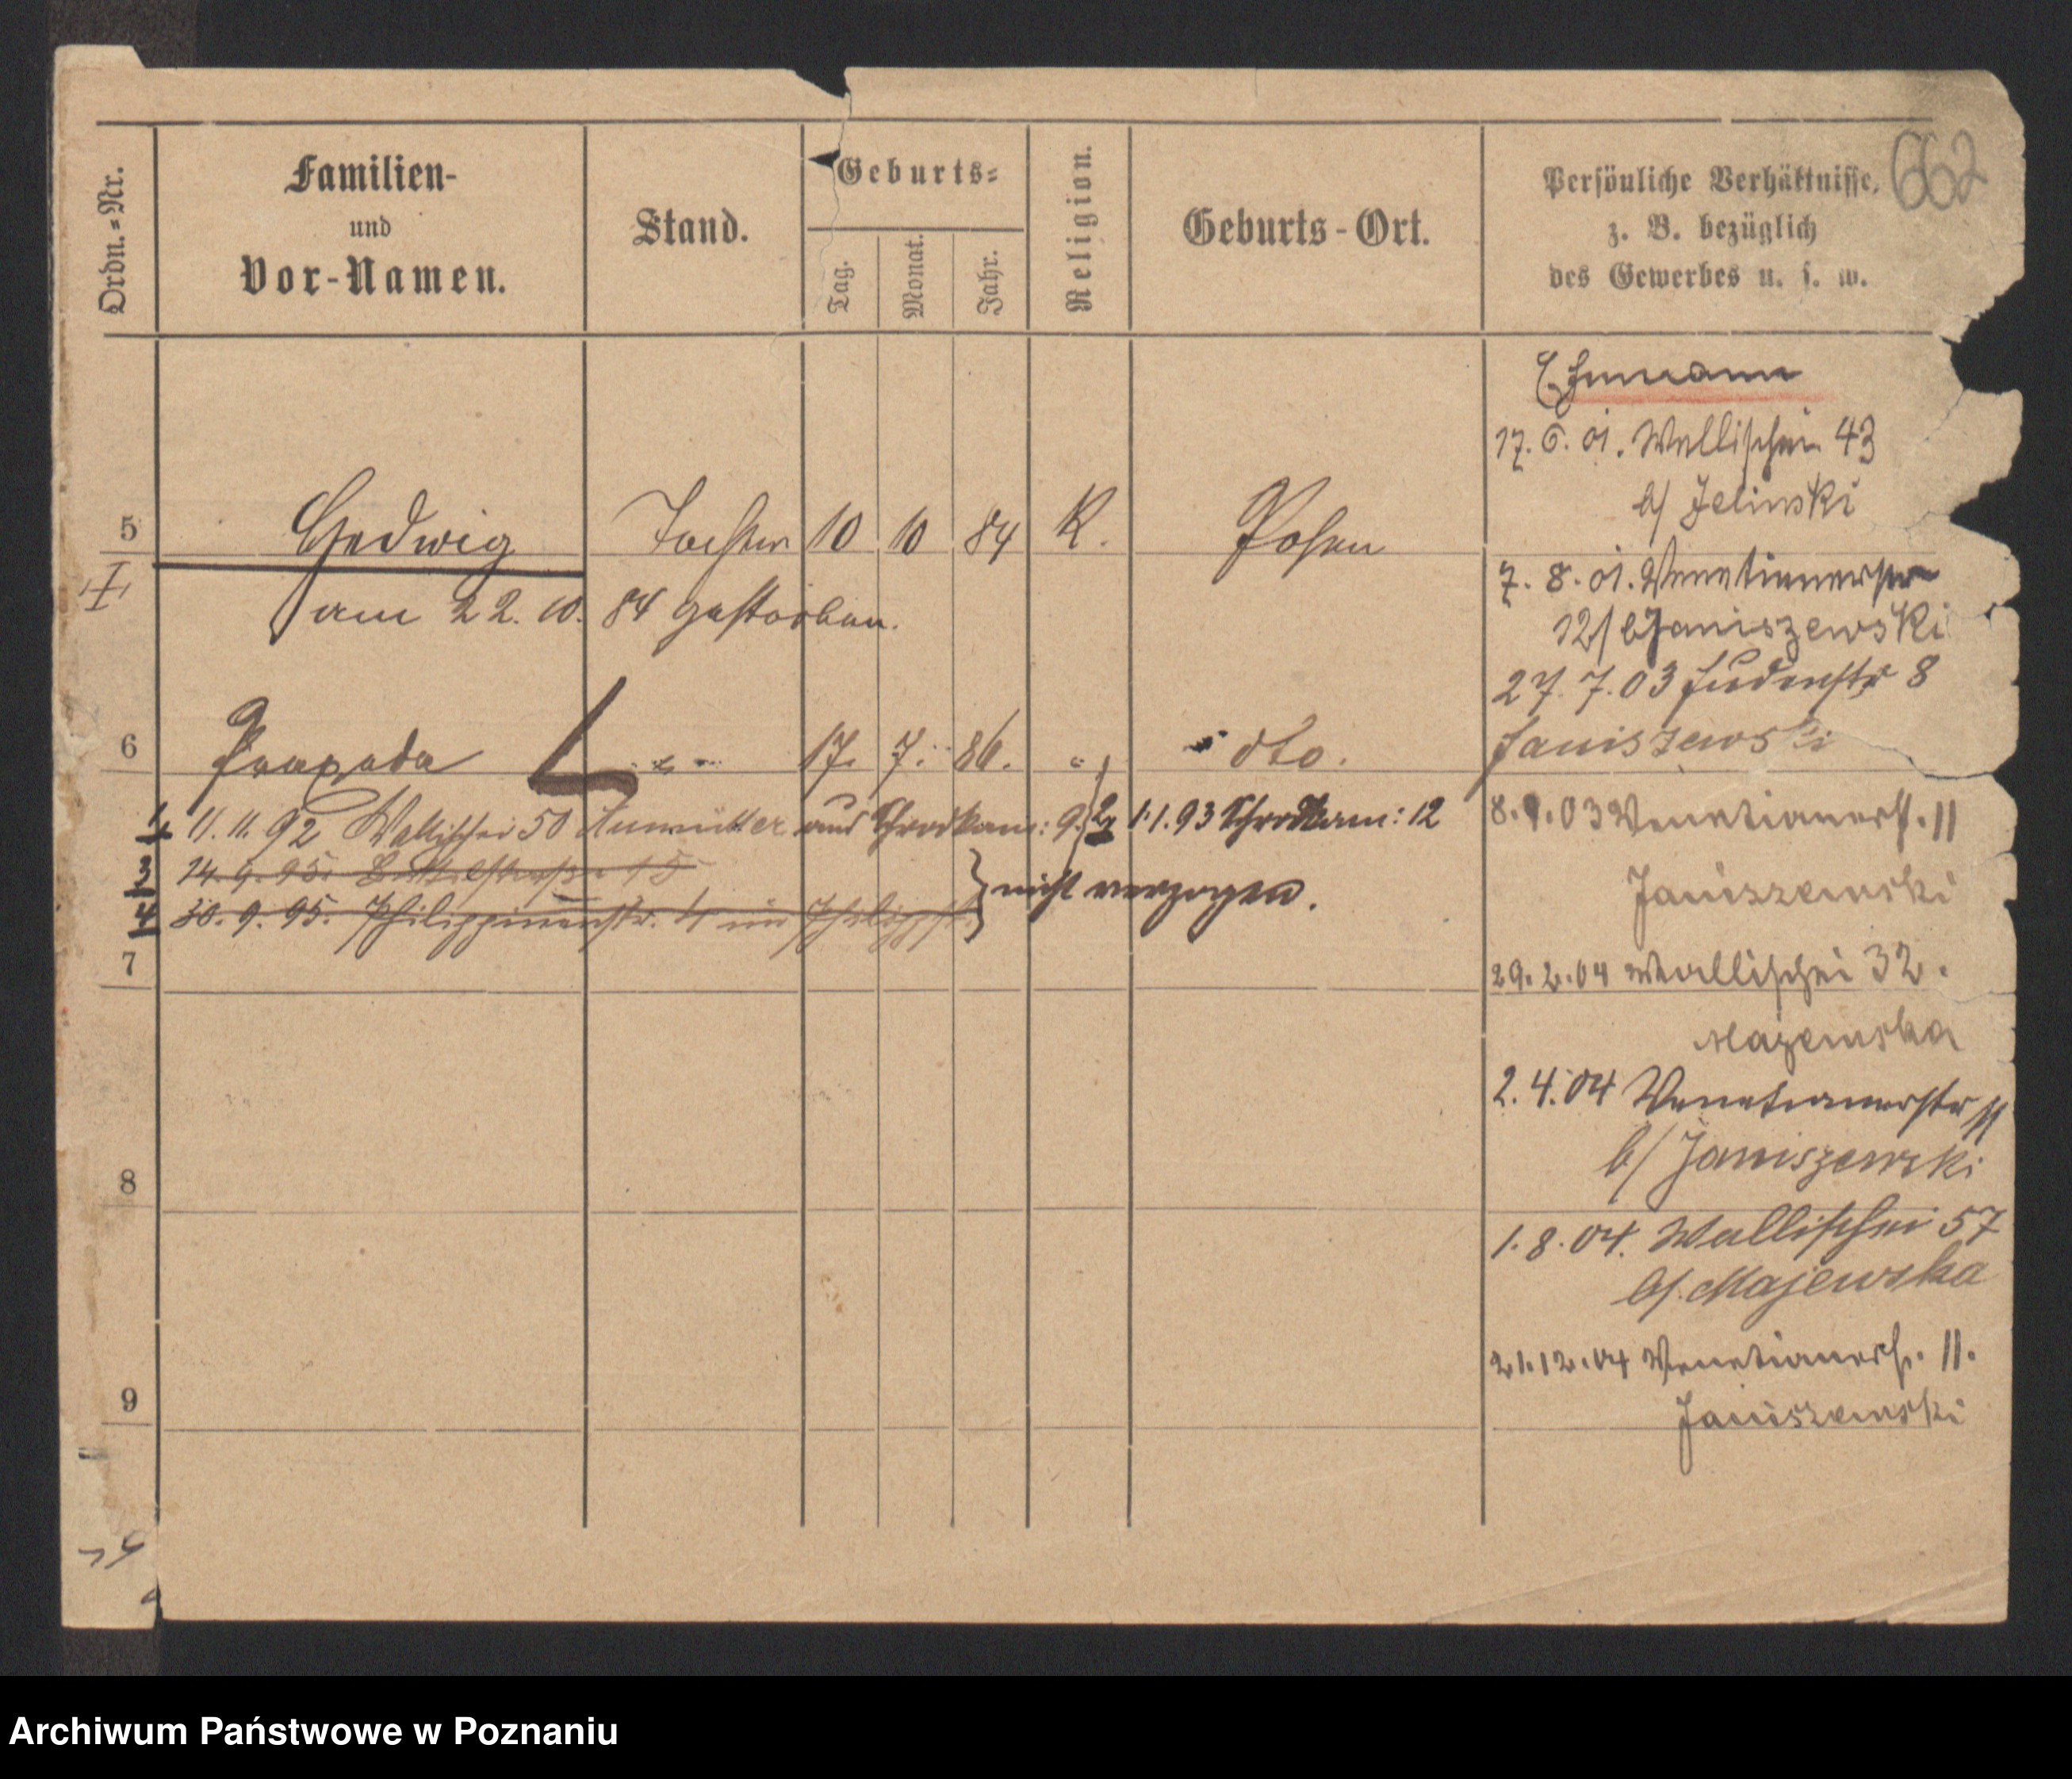 662
Ordn.-Nr.
Familien-
und
Vor-Namen.
Stand.
Geburts-
Tag.
Monat.
Jahr.
Religion.
Geburts-Ort.
Persönliche Verhältnisse,
z. B. bezüglich
des Gewerbes u. s. w.
5 Hedwig Tochter 10 10 84 K. Posen
am 22. 10. 84 gestorben.
6 Praxeda " 17. 7. 86. " dto.
1 11. 11. 92 Wallischei 50 aus Schrodkam: 9. 2, 1.1.93 Schrodkam: 12
3 14. 9. 95. 15
4 30. 9. 95. Philippinenstr. 4 im
nicht verzogen.
7
8
9
Ehemann
17. 6. 01. Wallischei 43
b/ Jelinski
7. 8. 01. Venetianerstr
12/ b Janiszewski
27. 7. 03 Judenstr 8
Janiszewski
8. 9. 03 Venetianerstr. 11
Janiszewski
29. 2. 04 Wallischei 32.
Majewska
2. 4. 04 Venetianerstr 11
b/ Janiszewski
1. 8. 04. Wallischei 57
b/. Majewska
21. 12. 04 Venetianerstr. 11.
Janiszewski
Archiwum Państwowe w Poznaniu